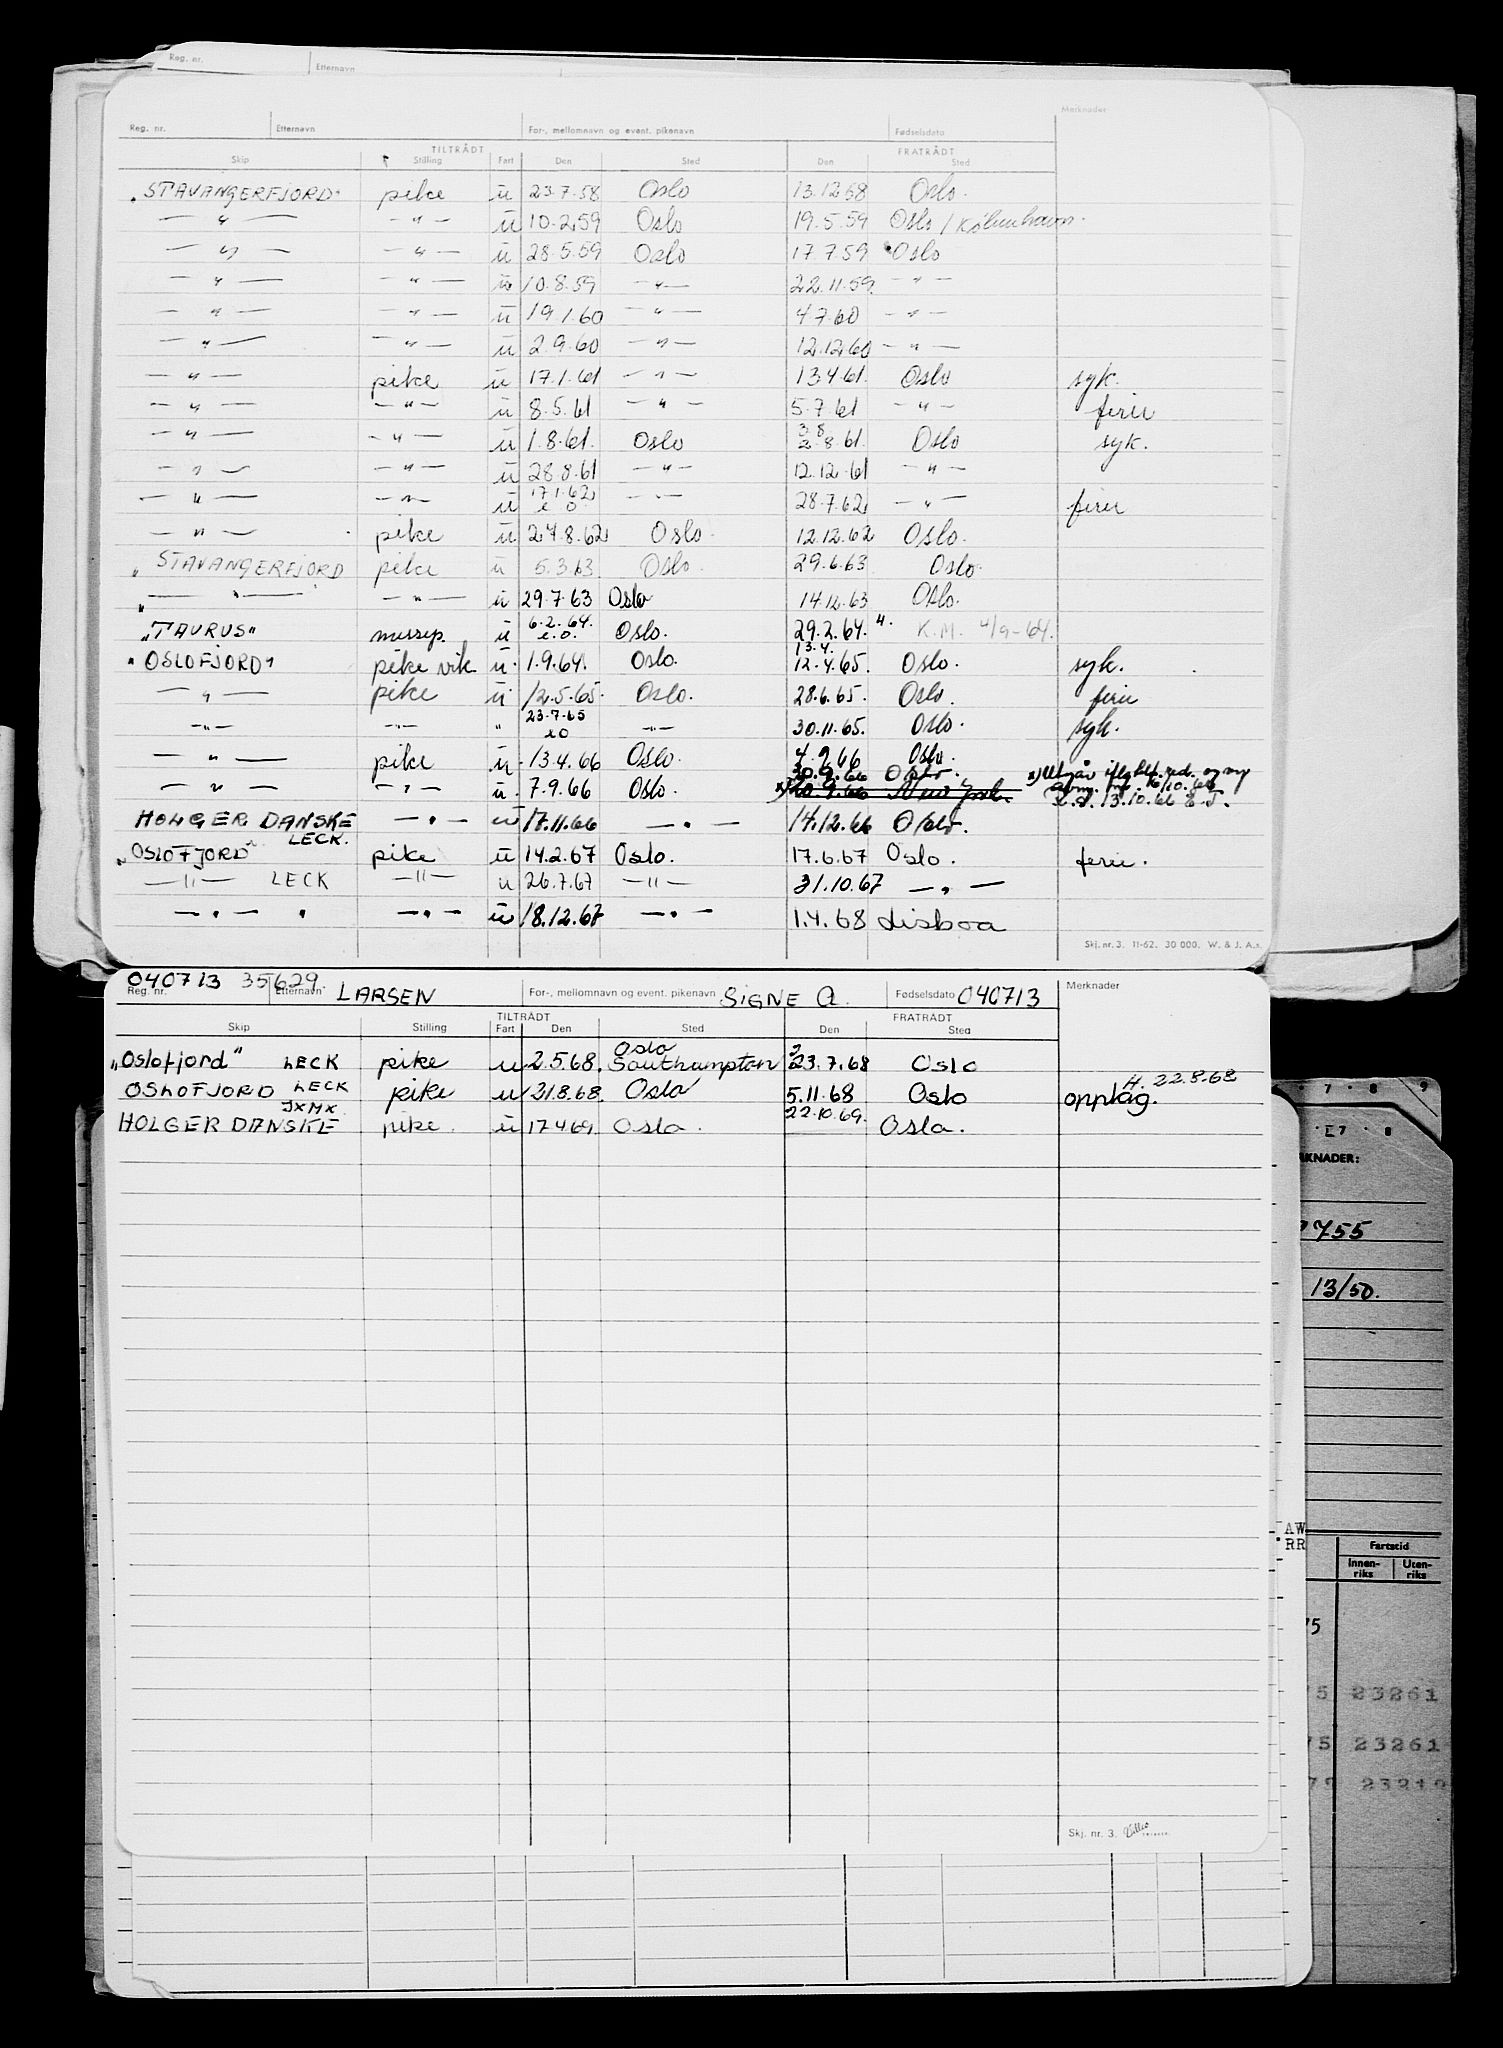 Reg. nr. Etternavn
Merknader
Reg. nr. Etternavn For-, mellomnavn og event. pikenavn Fødselsdato
TILTRÅDT FRATRÅDT
Skip Stilling Fart Den Sted Den Sted
"STAVANGERFJORD" pike u 23.7.58 Oslo 13.12.58 Oslo.
—"— —"— u 10.2.59 Oslo 19.5.59 Oslo / København.
—"— —"— u 28.5.59 Oslo 17.7.59 Oslo
—"— —"— u 10.8.59 —"— 22.11.59 —"—
—"— —"— u 19.1.60 —"— 4.7.60 —"—
—"— —"— u 2.9.60 —"— 12.12.60 —"—
—"— pike u 17.1.61 —"— 13.4.61. Oslo syk.
—"— —"— u 8.5.61 —"— 5.7.61 —"— ferie
—"— —"— u 1.8.61. Oslo 2.8.61. Oslo syk.
—"— —"— u 28.8.61 —"— 12.12.61 —"—
—"— —"— u 17.1.62 e.o. —"— 28.7.62 —"— ferie
—"— pike u 24.8.62 Oslo. 12.12.62 Oslo.
"STAVANGERFJORD pike u 5.3.63. Oslo. 29.6.63 Oslo.
—"— —"— u 29.7.63 Oslo 14.12.63 Oslo.
"TAURUS" messep. u 6.2.64. e.o. Oslo. 29.2.64. K.M. 4/9-64.
"OSLOFJORD" pike vik u. 1.9.64. Oslo. 13.4. 12.4.65. Oslo. syk.
—"— pike u. 12.5.65. Oslo. 28.6.65. Oslo. ferie
—"— —"— " 23.7.65 eo —"— 30.11.65. Oslo. syk.
—"— pike u. 13.4.66 Oslo. 4.9.66 Oslo.
—"— —"— u. 7.9.66 Oslo. 30.9.66 Oslo. x) 20.9.66 New York. x) Utgår
13.10.66
HOLGER DANSKE —"— u 17.11.66 —"— 14.12.66 Oslo.
LECK.
"OSLOFJORD" pike u 14.2.67 Oslo. 17.6.67 Oslo. ferie.
—"— LECK —"— u 26.7.67 —"— 31.10.67 —"—
—"— " —"— u 18.12.67 —"— 1.4.68 Lisboa
Skj. nr. 3. 11-62. 30 000. W. & J. A.s.
040713 35629.
Reg. nr. Etternavn LARSEN For-, mellomnavn og event. pikenavn SIGNE A. Fødselsdato 040713 Merknader
TILTRÅDT FRATRÅDT
Skip Stilling Fart Den Sted Den Sted
"Oslofjord" LECK pike u 2.5.68. Oslo Southampton 23.7.68 Oslo
OSLOFJORD LECK pike u 31.8.68. Oslo 5.11.68 Oslo opplag. H. 22.8.68
HOLGER DANSKE JXMX pike. u 17.4.69. Oslo. 22.10.69. Oslo.
Skj. nr. 3.
7 · 8 9
7 · 8
KNADER:
755
13/50.
AW
RR
Fartstid
Innen-riks Uten-riks
75
75 23261
75 23261